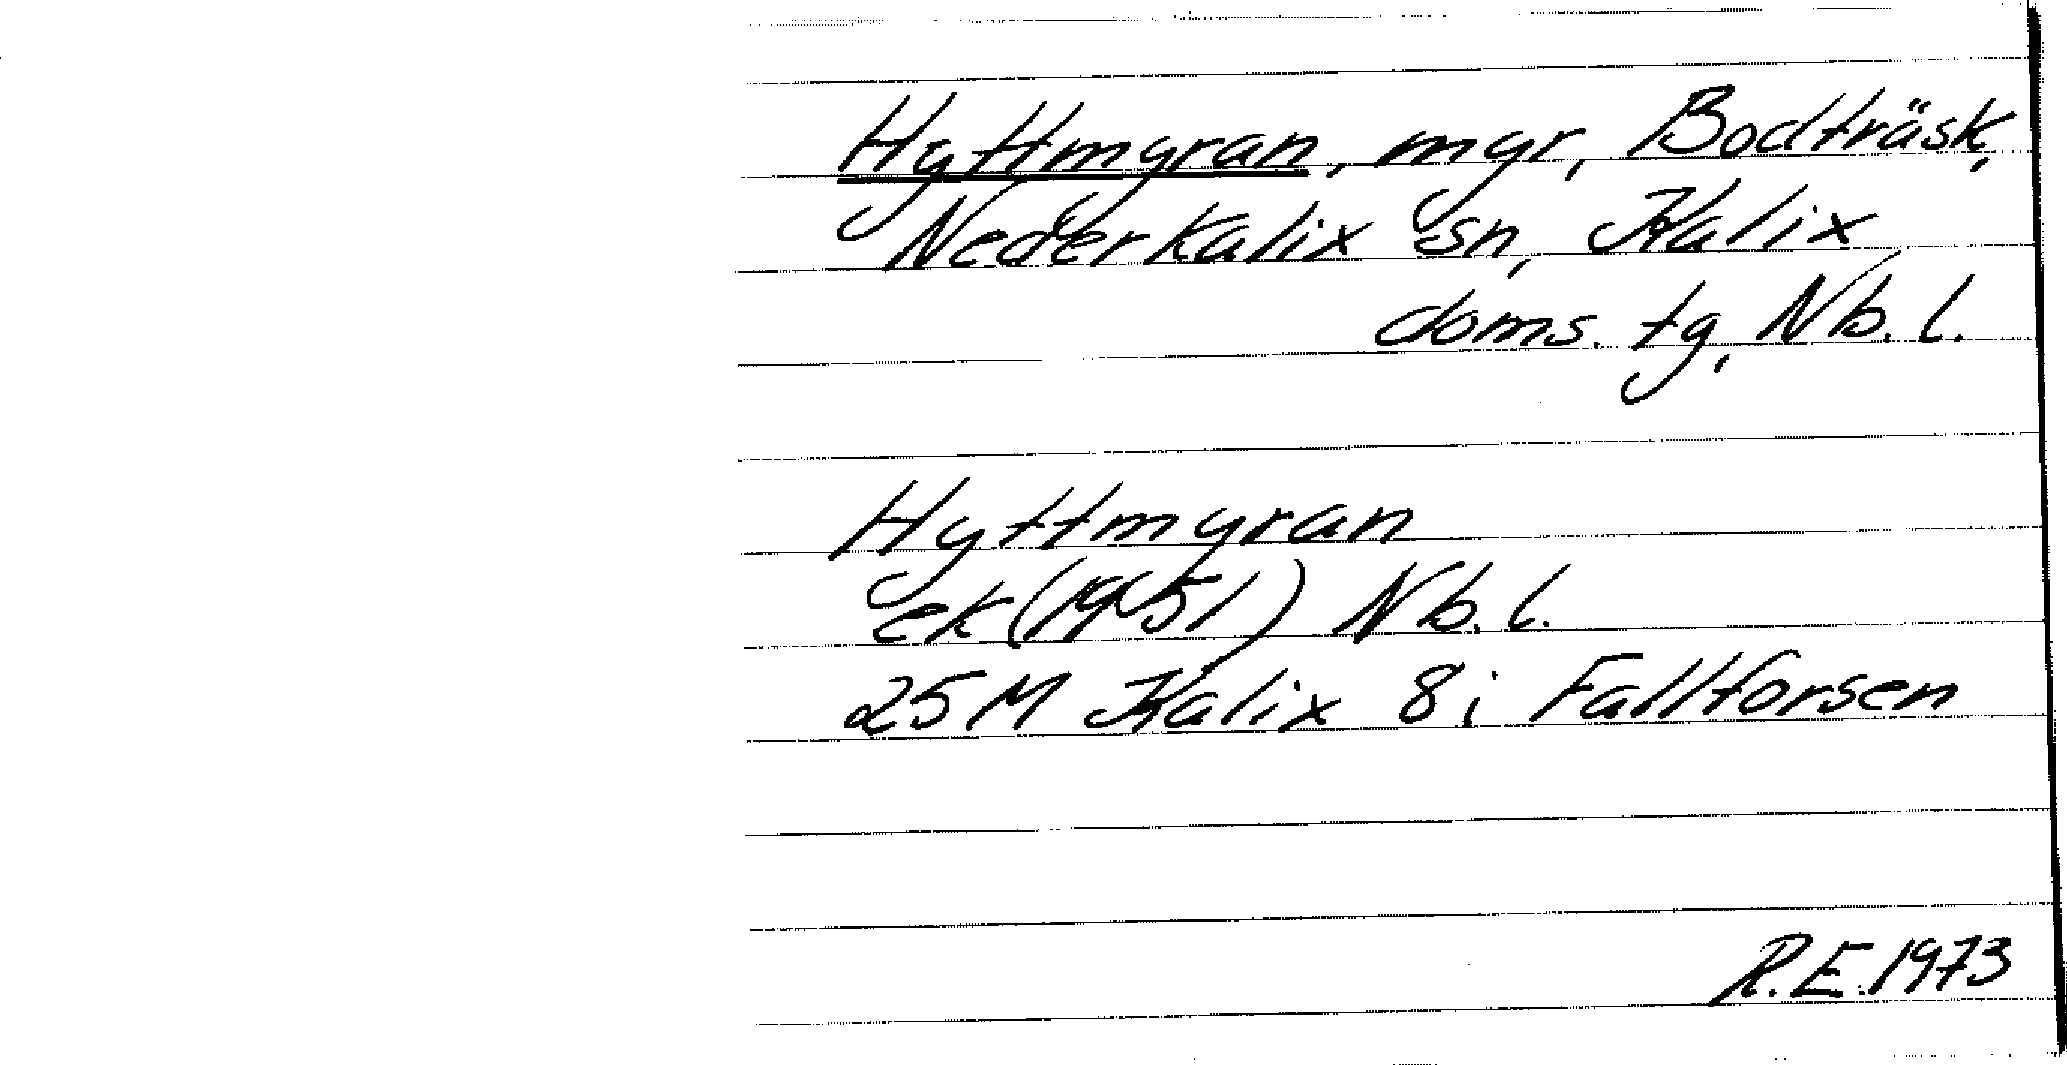 Hyttmyran, myr, Bodträsk,
Nederkalix sn, Kalix
doms. tg, Nb. l.
Hyttmyran
ek (1951) Nb. l.
25 M Kalix 8 i Fallforsen
R.E. 1973